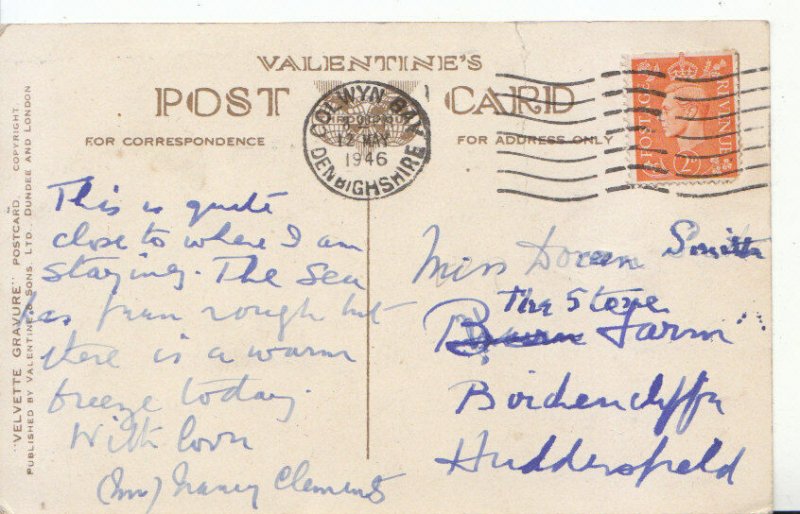 VALENTINE'S
POST CARD
FOR CORRESPONDENCE
FOR ADDRESS ONLY
COLWYN BAY
12 MAY
1946
DENBIGHSHIRE
POSTAGE
REVENUE
"VELVETTE GRAVURE" POSTCARD. COPYRIGHT.
PUBLISHED BY VALENTINE & SONS, LTD., DUNDEE AND LONDON
This is quite
close to where I am
staying. The Sea
has been rough but
there is a warm
breeze today.
With love
(Mrs) Nancy Clements
Miss Doreen Smith
The Stone
Farm
Huddersfield